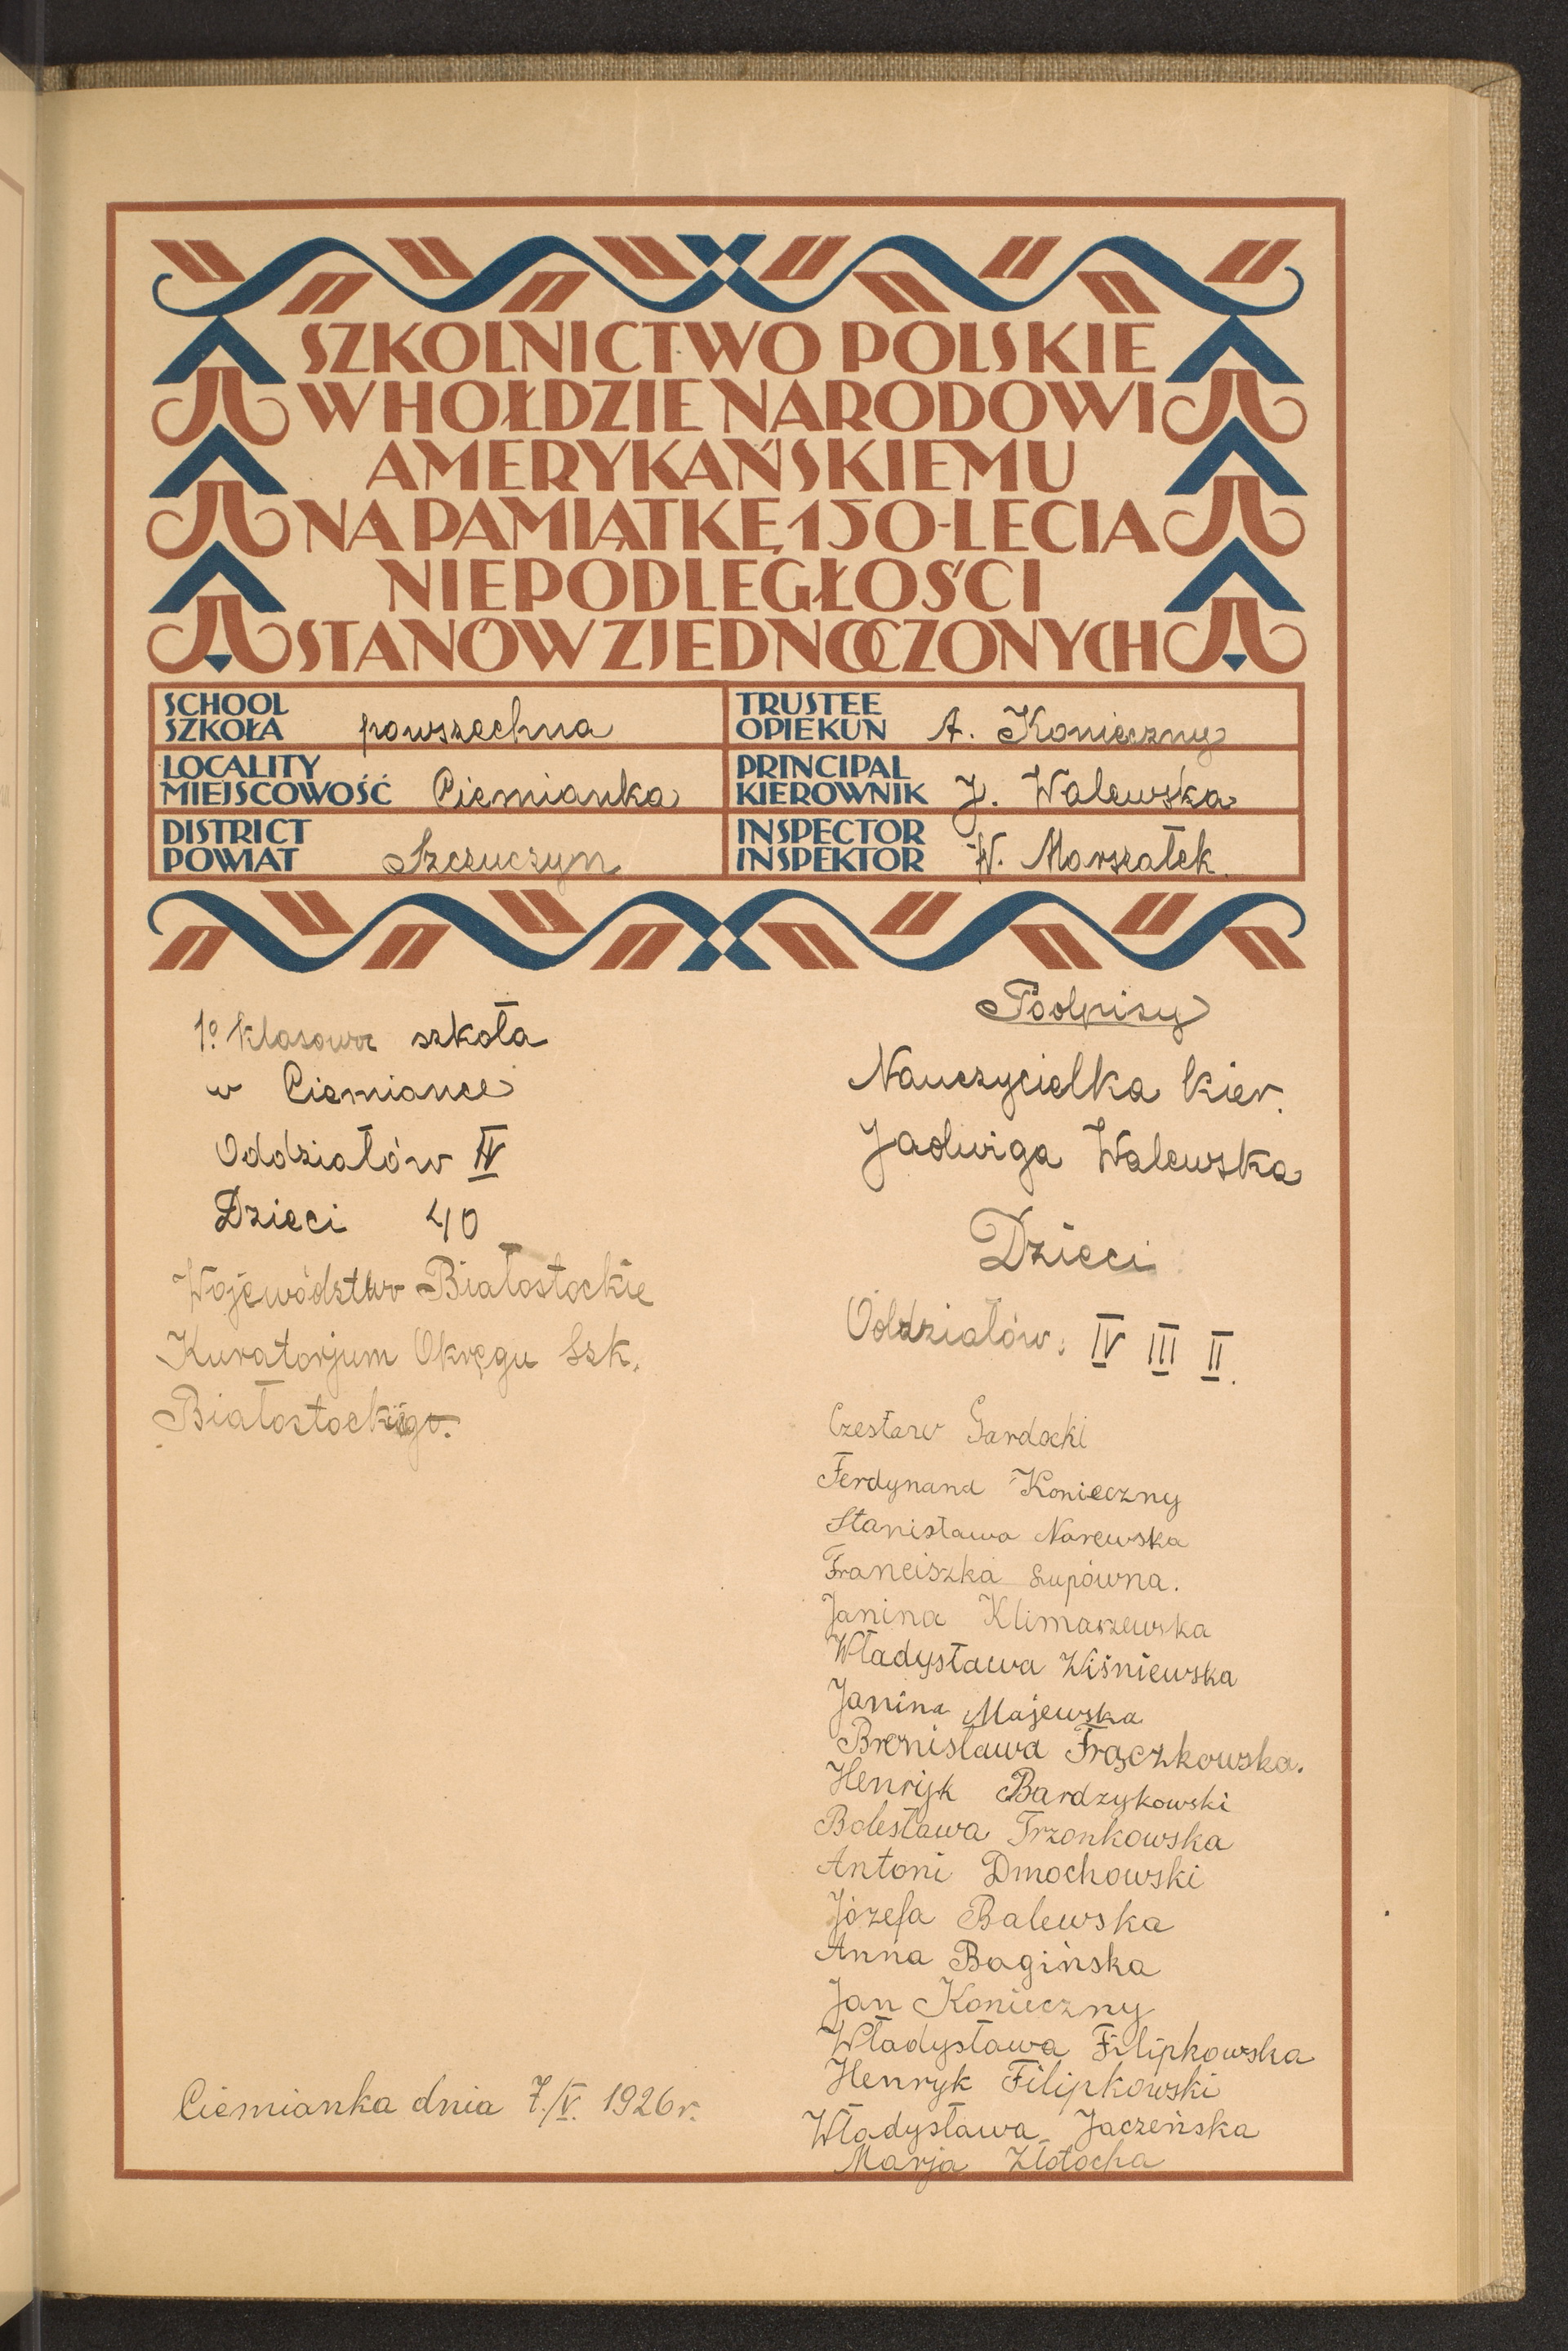 SZKOLNICTWO POLSKIE
W HOŁDZIE NARODOWI
AMERYKAŃSKIEMU
NA PAMIĄTKĘ 150-LECIA
NIEPODLEGŁOŚCI
STANÓW ZJEDNOCZONYCH
SCHOOL
SZKOŁA powszechna
TRUSTEE
OPIEKUN A. Konieczny
LOCALITY
MIEJSCOWOŚĆ Ciemianka
PRINCIPAL
KIEROWNIK J. Walewska
DISTRICT
POWIAT Szczuczyn
INSPECTOR
INSPEKTOR W. Marszałek.
1º klasowa szkoła
w Ciemiance
Oddziałów IV
Dzieci 40
Województwo Białostockie
Kuratorjum Okręgu Szk.
Białostockiego.
Ciemianka dnia 7./V. 1926 r.
Podpisy
Nauczycielka kier.
Jadwiga Walewska
Dzieci
Oddziałów: IV III II.
Czesław Gardocki
Ferdynand Konieczny
Stanisława Narewska
Franciszka Supówna.
Janina Klimaszewska
Władysława Wiśniewska
Janina Majewska
Bronisława Frączkowska.
Henryk Bardzykowski
Bolesława Trzonkowska
Antoni Dmochowski
Józefa Balewska
Anna Bagińska
Jan Konieczny
Władysława Filipkowska
Henryk Filipkowski
Władysława Jaczeńska
Marja Złotocha